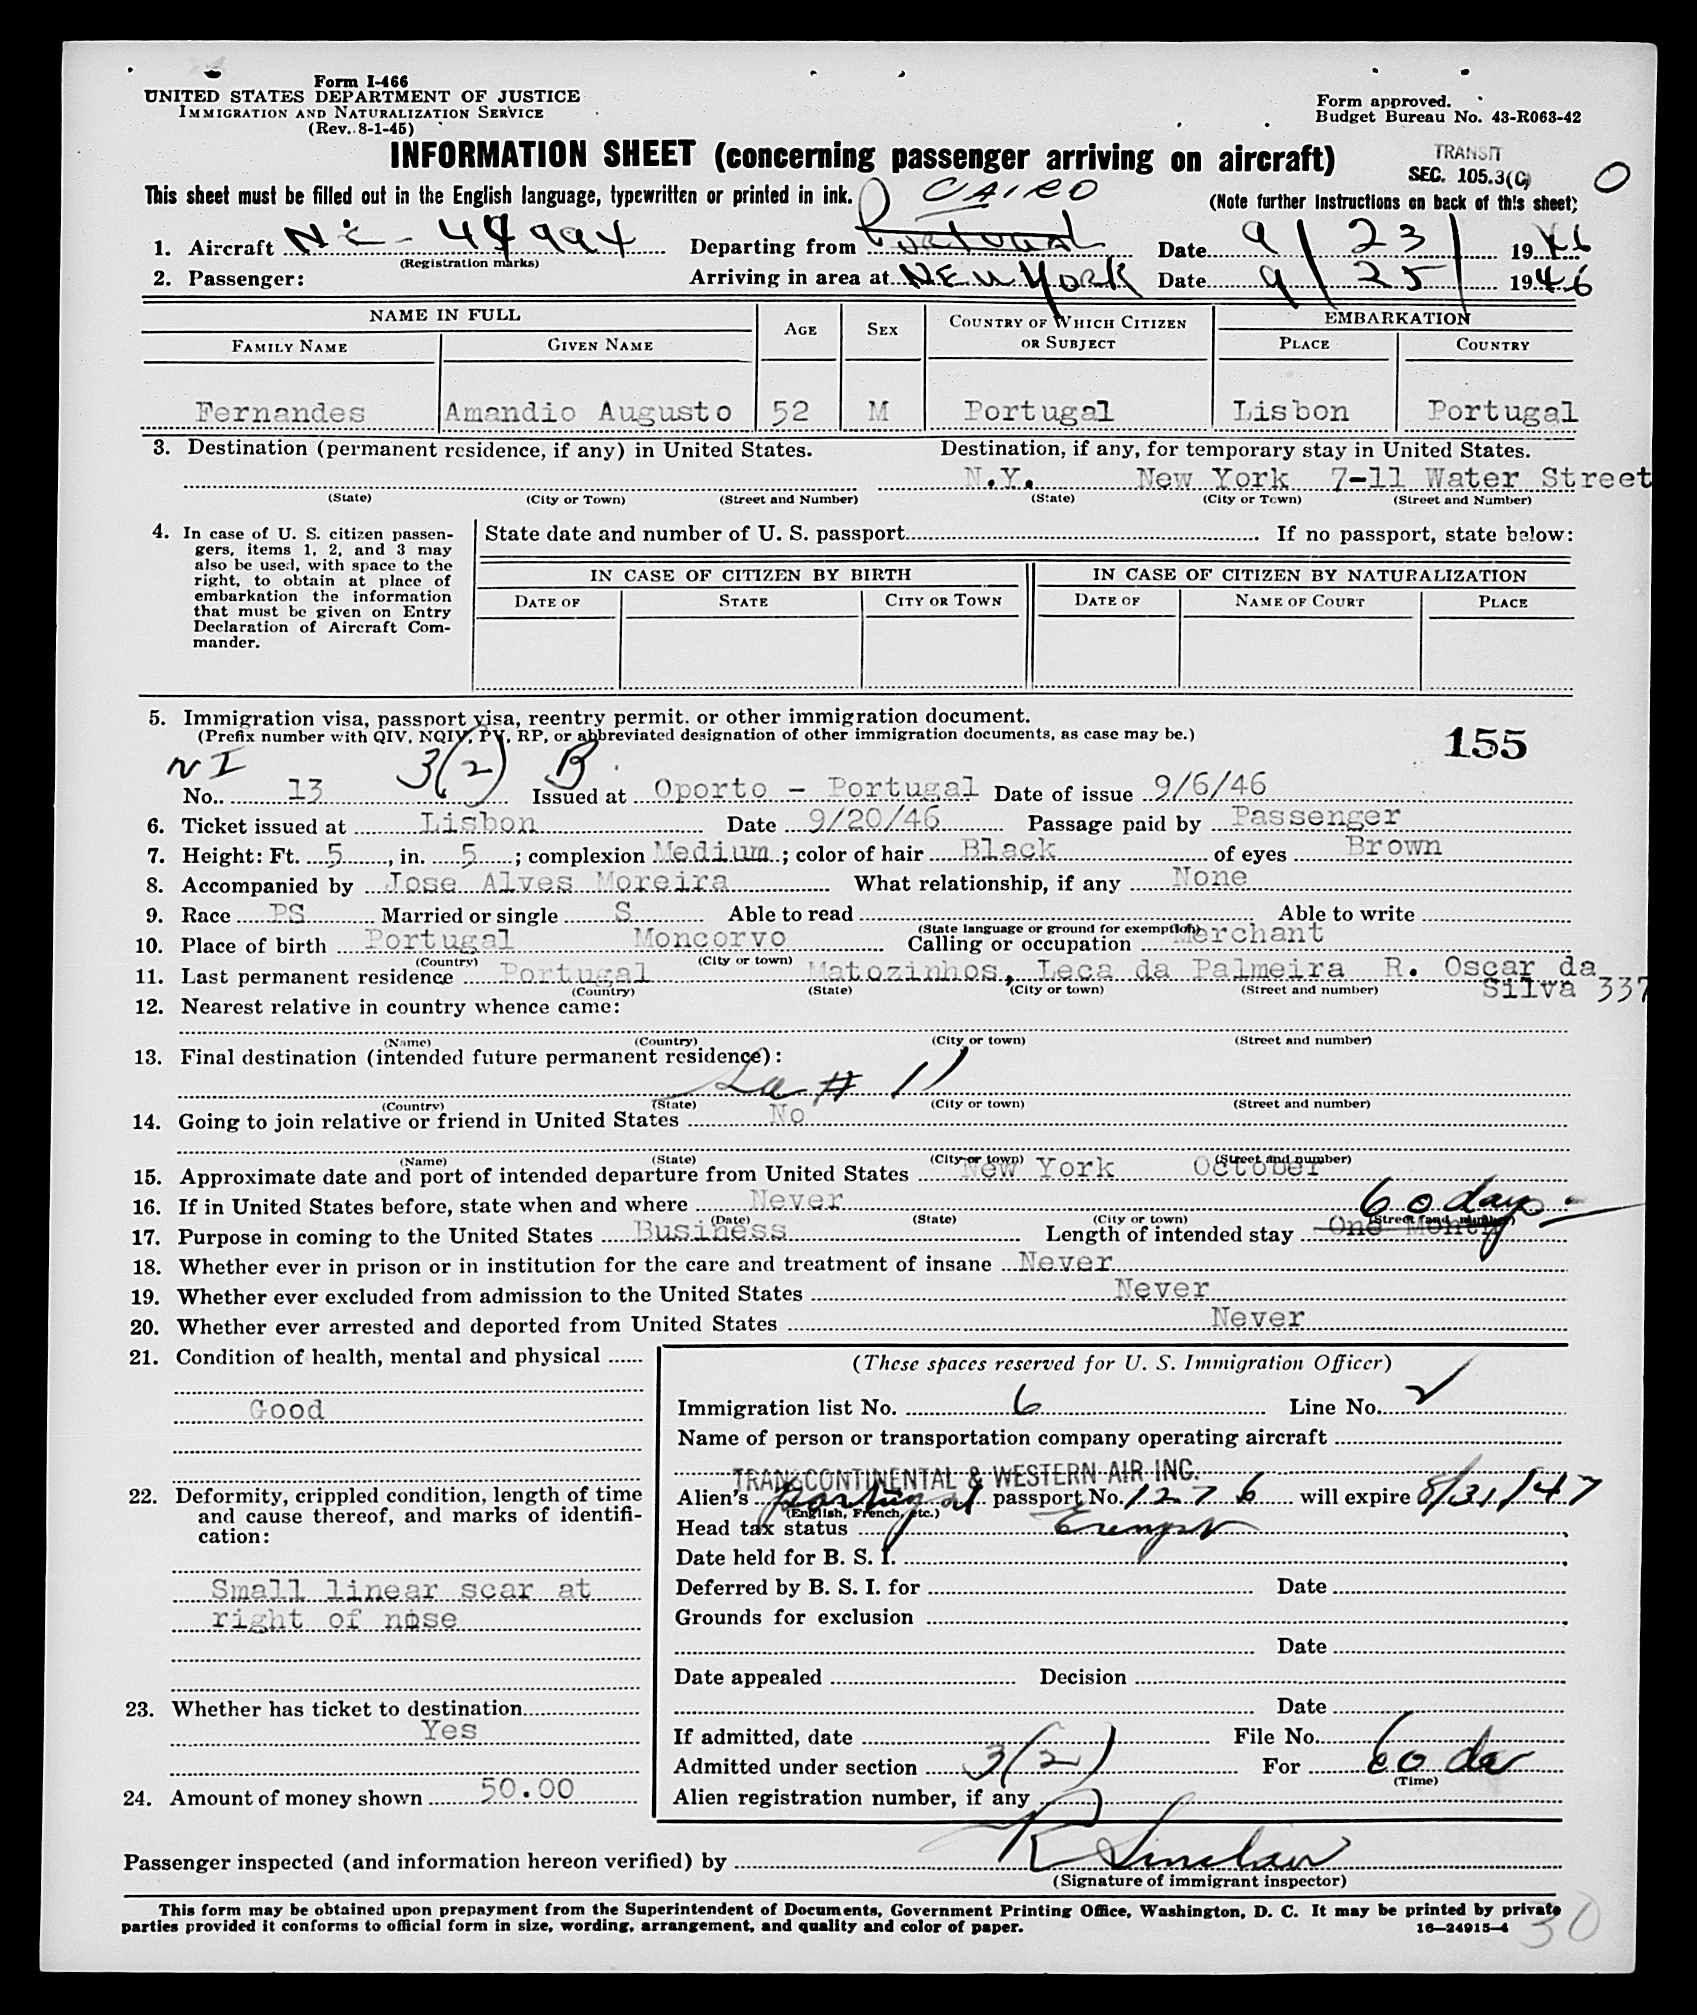 Form I-466
UNITED STATES DEPARTMENT OF JUSTICE
IMMIGRATION AND NATURALIZATION SERVICE
(Rev. 8-1-45)
Form approved.
Budget Bureau No. 43-R063-42
INFORMATION SHEET (concerning passenger arriving on aircraft)
TRANSIT
SEC. 105.3(C)
O
This sheet must be filled out in the English language, typewritten or printed in ink.
CAIRO
(Note further instructions on back of this sheet)
1. Aircraft NC-44994 Departing from Portugal Date 9/23/ 1946
(Registration marks)
2. Passenger: Arriving in area at NEW YORK Date 9/25/ 1946
NAME IN FULL AGE SEX COUNTRY OF WHICH CITIZEN OR SUBJECT EMBARKATION
FAMILY NAME GIVEN NAME PLACE COUNTRY
Fernandes Amandio Augusto 52 M Portugal Lisbon Portugal
3. Destination (permanent residence, if any) in United States. Destination, if any, for temporary stay in United States.
N.Y. New York 7-11 Water Street
(State) (City or Town) (Street and Number) (State) (City or Town) (Street and Number)
4. In case of U. S. citizen passen-
gers, items 1, 2, and 3 may
also be used, with space to the
right, to obtain at place of
embarkation the information
that must be given on Entry
Declaration of Aircraft Com-
mander.
State date and number of U. S. passport If no passport, state below:
IN CASE OF CITIZEN BY BIRTH IN CASE OF CITIZEN BY NATURALIZATION
DATE OF STATE CITY OR TOWN DATE OF NAME OF COURT PLACE
5. Immigration visa, passport visa, reentry permit, or other immigration document.
(Prefix number with QIV, NQIV, PV, RP, or abbreviated designation of other immigration documents, as case may be.)
155
NI 3(2) B
No. 13 Issued at Oporto - Portugal Date of issue 9/6/46
6. Ticket issued at Lisbon Date 9/20/46 Passage paid by Passenger
7. Height: Ft. 5, in. 5; complexion Medium; color of hair Black of eyes Brown
8. Accompanied by Jose Alves Moreira What relationship, if any None
9. Race PS Married or single S Able to read Able to write
(State language or ground for exemption)
10. Place of birth Portugal Moncorvo Calling or occupation Merchant
(Country) (City or town)
11. Last permanent residence Portugal Matozinhos, Leca da Palmeira R. Oscar da
Silva 337
(Country) (State) (City or town) (Street and number)
12. Nearest relative in country whence came:
(Name) (Country) (City or town) (Street and number)
13. Final destination (intended future permanent residence):
# 11
(Country) (State) (City or town) (Street and number)
14. Going to join relative or friend in United States No
(Name) (State) (City or town) (Street and number)
15. Approximate date and port of intended departure from United States New York October
16. If in United States before, state when and where Never
60 days
(Date) (State) (City or town) (Street and number)
17. Purpose in coming to the United States Business Length of intended stay One Month
18. Whether ever in prison or in institution for the care and treatment of insane Never
19. Whether ever excluded from admission to the United States Never
20. Whether ever arrested and deported from United States Never
21. Condition of health, mental and physical
Good
22. Deformity, crippled condition, length of time
and cause thereof, and marks of identifi-
cation:
Small linear scar at
right of nose
23. Whether has ticket to destination
Yes
24. Amount of money shown 50.00
(These spaces reserved for U. S. Immigration Officer)
Immigration list No. 6 Line No. 2
Name of person or transportation company operating aircraft
TRANSCONTINENTAL & WESTERN AIR INC.
Alien's Portugal passport No. 1276 will expire 8/31/47
(English, French, etc.)
Head tax status Exempt
Date held for B. S. I.
Deferred by B. S. I. for Date
Grounds for exclusion
Date
Date appealed Decision
Date
If admitted, date File No.
Admitted under section 3(2) For 60 da
(Time)
Alien registration number, if any
Passenger inspected (and information hereon verified) by R Sinclair
(Signature of immigrant inspector)
This form may be obtained upon prepayment from the Superintendent of Documents, Government Printing Office, Washington, D. C. It may be printed by private
parties provided it conforms to official form in size, wording, arrangement, and quality and color of paper. 16—24915-4
30